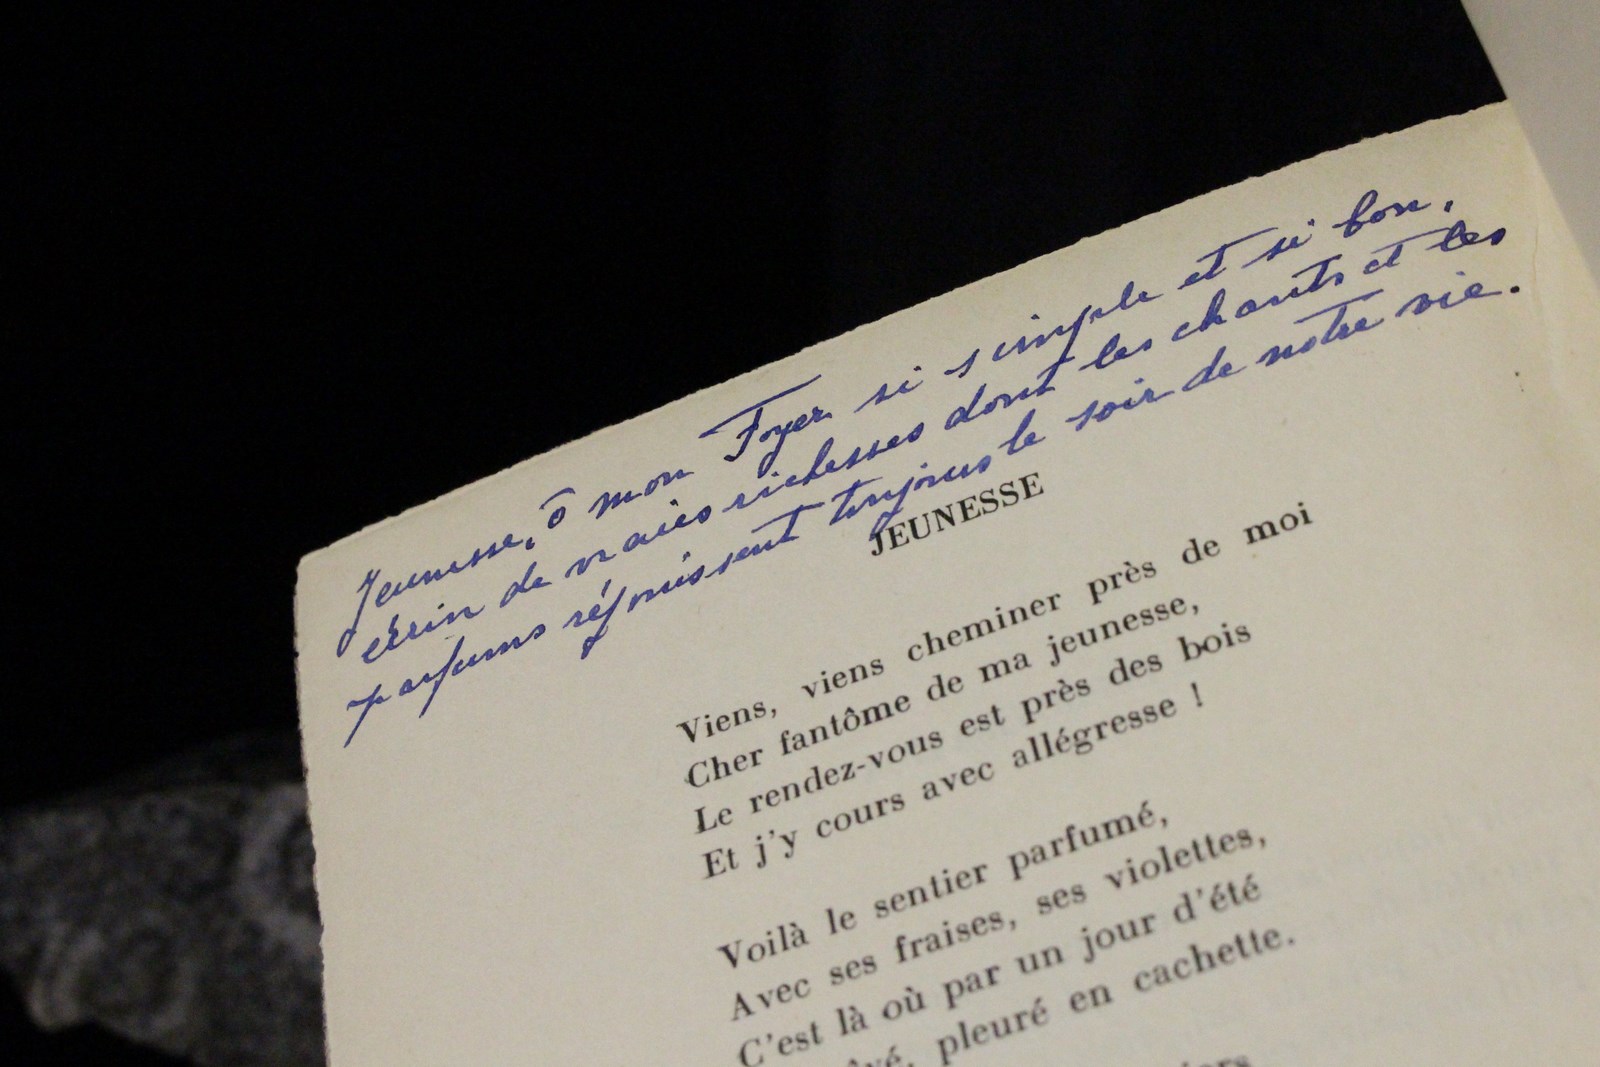 Jeunesse, ô mon Foyer si simple et si bon,
écrin de vraies richesses dont les chants et les
parfums réjouissent toujours le soir de notre vie.
JEUNESSE
Viens, viens cheminer près de moi
Cher fantôme de ma jeunesse,
Le rendez-vous est près des bois
Et j'y cours avec allégresse !
Voilà le sentier parfumé,
Avec ses fraises, ses violettes,
C'est là où par un jour d'été
pleuré en cachette.